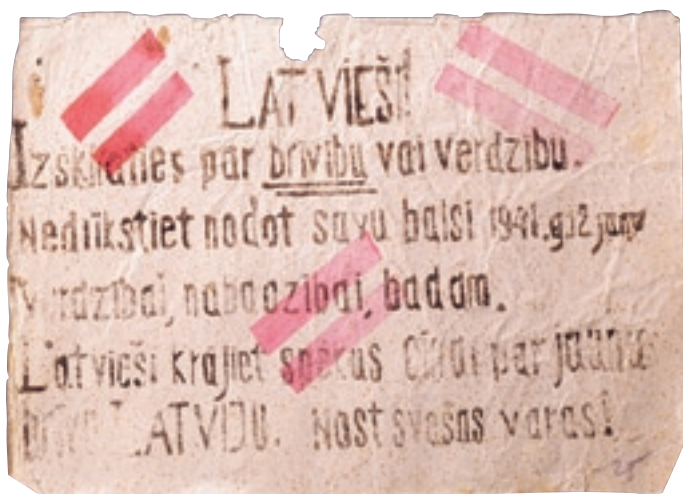 LATVIEŠI!
Izškiraties par brīvību vai verdzību.
Nedrīkstiet nodot savu balsi 1941.g. 12 janv
Verdzībai, nabadzībai, badam.
Latvieši krājiet spēkus cīņai par jaunu
LATVIJU. Nost svešas varas!
25